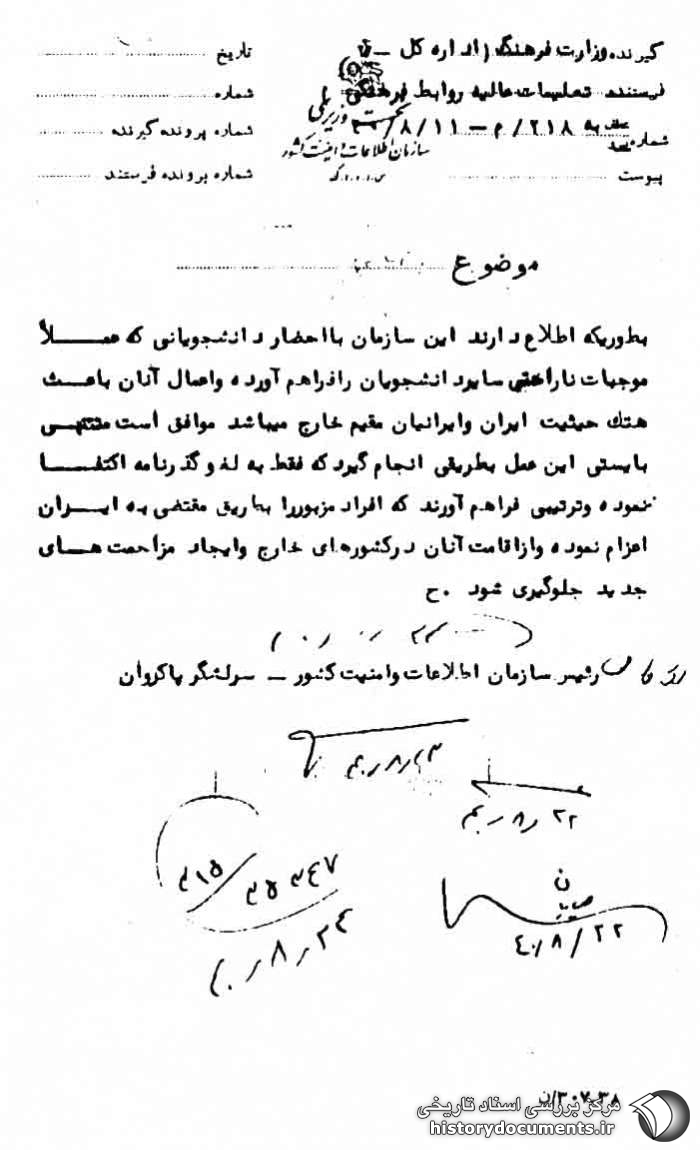 گیرنده وزارت فرهنگ (اداره کل
تعلیمات عالیه روابط فرهنگی
نخست وزیری
سازمان اطلاعات و امنیت کشور
شماره
پیوست
تاریخ
شماره
شماره پرونده گیرنده
شماره پرونده فرستنده
موضوع
بطوریکه اطلاع دارند این سازمان با احضار دانشجویانی که عملاً
موجبات ناراحتی سایر دانشجویان را فراهم آورده و اعمال آنان باعث
هتك حیثیت ایران و ایرانیان مقیم خارج میباشد موافق است منتهی
بایستی این عمل بطریقی انجام گیرد که فقط به لغو گذرنامه اکتفا
نموده و ترتیبی فراهم آورند که افراد مزبور را بطریق مقتضی به ایران
اعزام نموده و از اقامت آنان در کشورهای خارج و ایجاد مزاحمت های
جدید جلوگیری شود .ح
رئیس سازمان اطلاعات و امنیت کشور – سرلشگر پاکروان
۲۲/۸/۴۰
۴۰/۸/۲۲
۲۴/۸/۴۰
مرکز بررسی اسناد تاریخی
historydocuments.ir